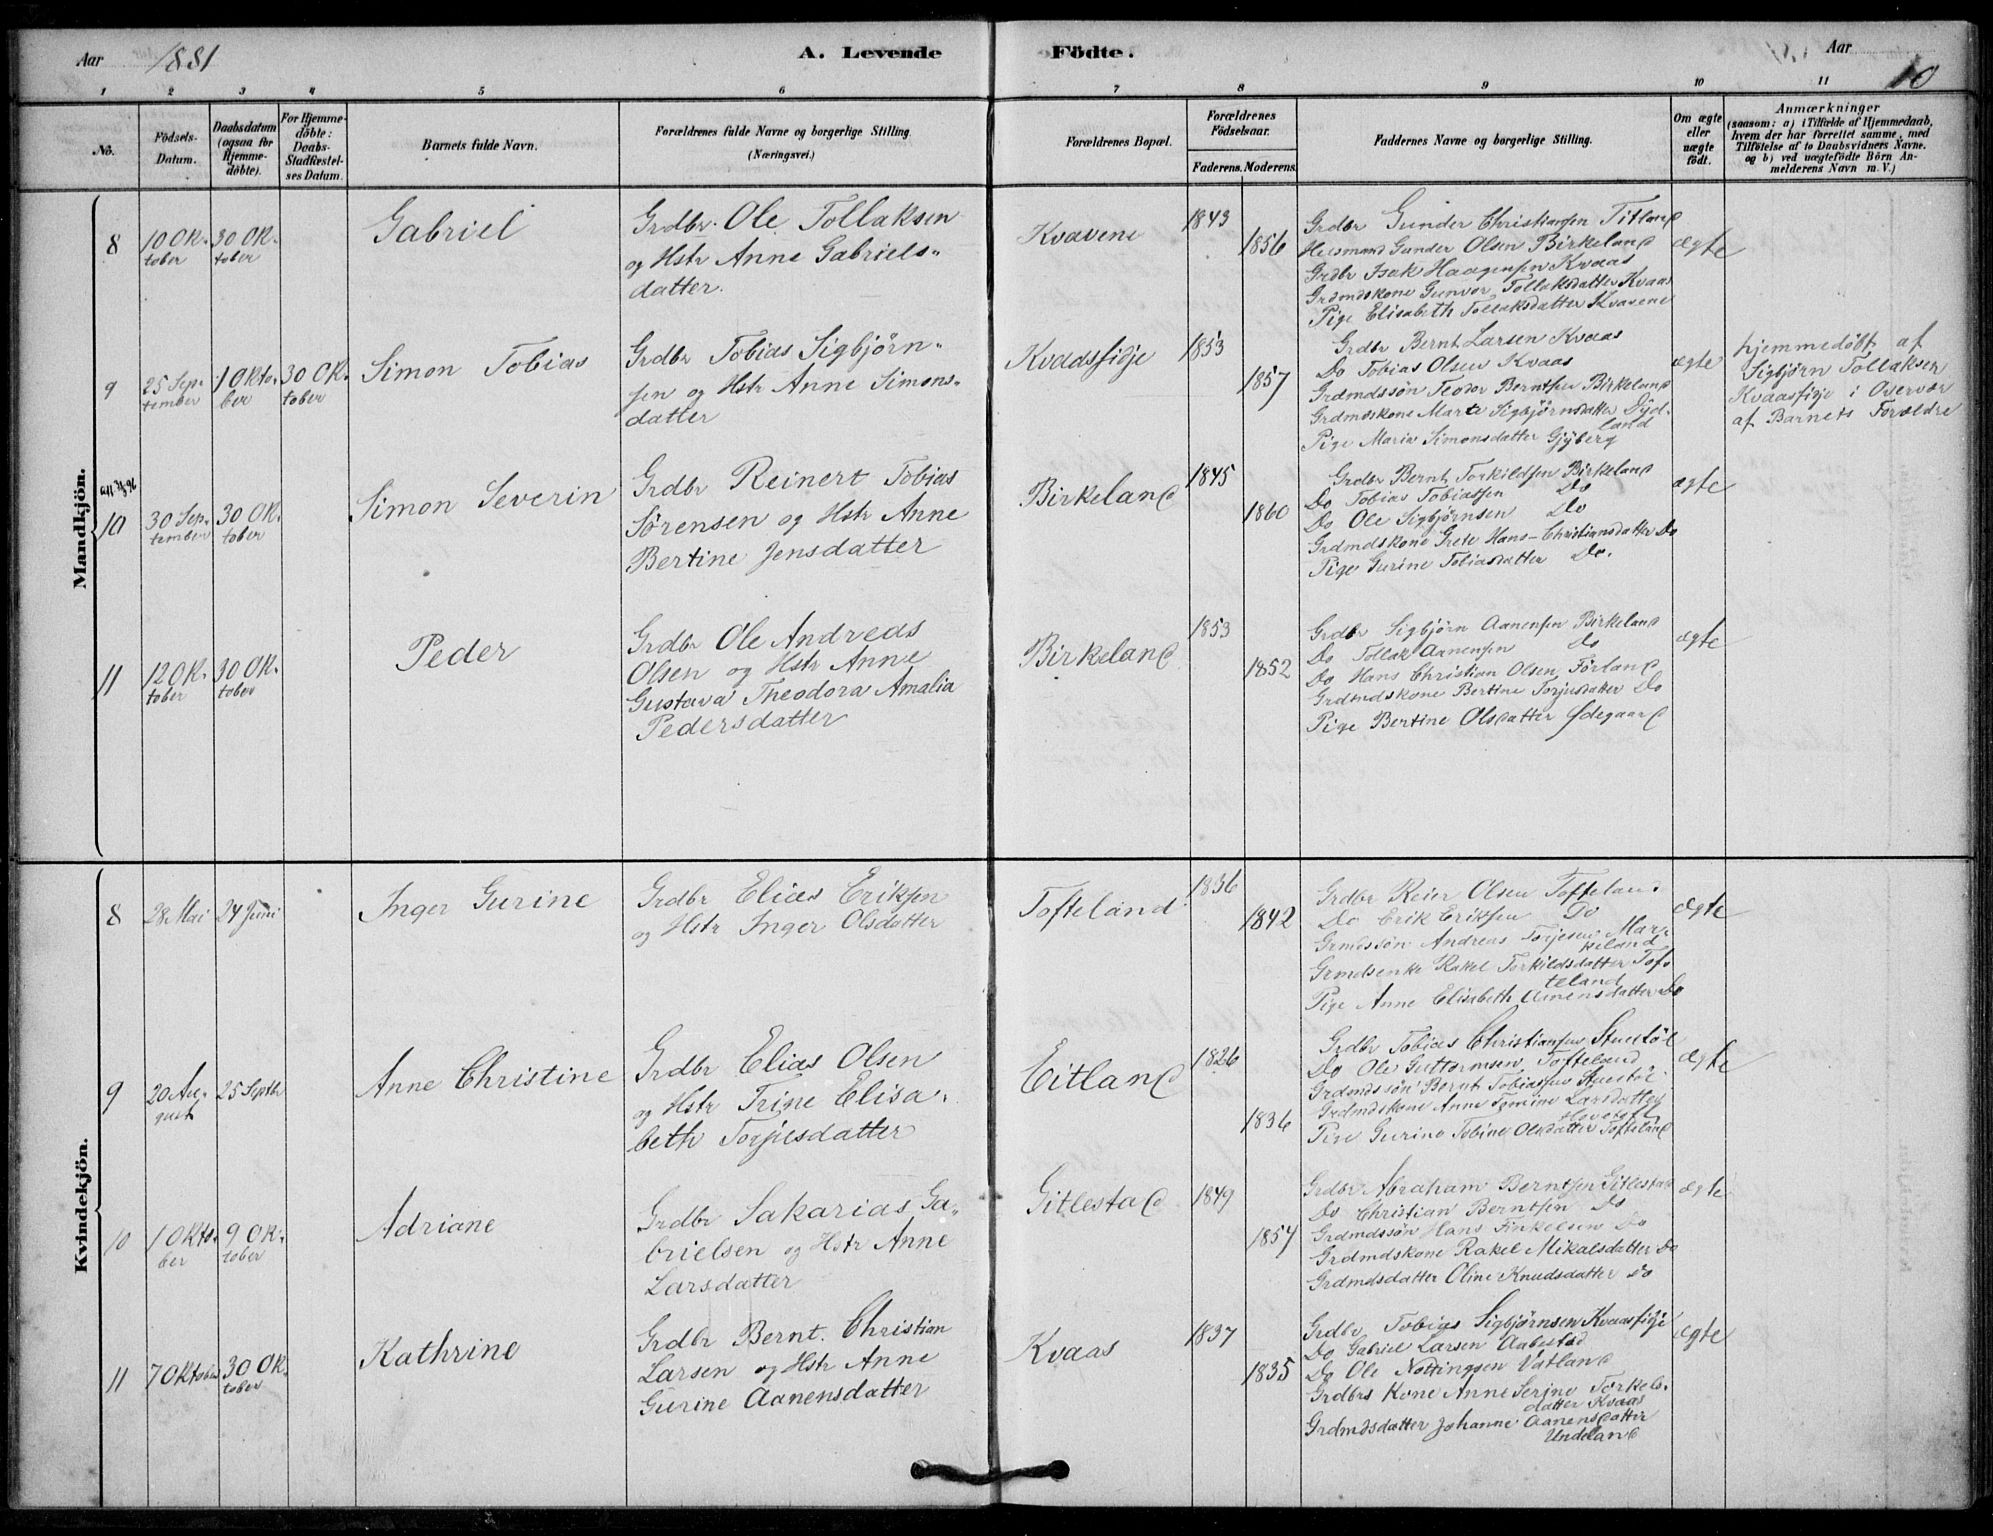 Aar 1881
A. Levende Födte.
Aar
10
1 2 3 4 5 6 7 8 9 10 11
No.
Födsels-Datum.
Daabsdatum (ogsaa for Hjemme-döbte).
For Hjemme-döbte: Daabs-Stadfæstel-ses Datum.
Barnets fulde Navn.
Forældrenes fulde Navne og borgerlige Stilling. (Næringsvei.)
Forældrenes Bopæl.
Forældrenes Födselsaar.
Faderens. Moderens.
Faddernes Navne og borgerlige Stilling.
Om ægte eller uægte födt.
Anmærkninger
(saasom: a) i Tilfælde af Hjemmedaab,
hvem der har forrettet samme, med
Tilföielse af to Daabsvidners Navne.
og b) ved uægtefödte Börn An-
melderens Navn m. V.)
Mandkjön.
8
10 Ok-
tober
30 Ok-
tober
Gabriel
Grdbr. Ole Tollaksen
og Hstr Anne Gabriels-
datter.
Kvavene
1843
1856
Grdbr Gunder Christiansen Titland
Gunder Olsen Birkeland
Grdbr Isak Haagensen Kvaas
Grdmdskone Gunvor Tollaksdatter Kvaas
Pige Elisabeth Tollaksdatter Kvavene
ægte
9
25 Sep-
tember
1 Okto-
ber
30 Ok-
tober
Simon Tobias
Grdbr Tobias Sigbjörn-
sen og Hstr Anne Simons-
datter
Kvaasfidje
1853
1857
Grdbr Bernt Larsen Kvaas
Do Tobias Olsen Kvaas
Grdmdssön Teodor Berntsen Birkeland
Grdmdskone Marte Sigbjörnsdatter Dyd-
land
Pige Maria Simonsdatter Gjyberg
ægte
hjemmedöbt af
Sigbjörn Tollaksen
Kvaasfije i Overvær
af Barnets Forældre
10
30 Sep-
tember
30 Ok-
tober
Simon Severin
Grdbr Reinert Tobias
Sörensen og Hstr Anne
Bertine Jensdatter
Birkeland
1845
1860
Grdbr Bernt Torkildsen Birkeland
Do Tobias Tobiassen Do
Do Ole Sigbjörnsen Do
Grdmdskone Grete Hans-Christiansdatter Do
Pige Gurine Tobiasdatter Do.
ægte
11
12 Ok-
tober
30 Ok-
tober
Peder
Grdbr Ole Andreas
Olsen og Hstr Anne
Gustava Theodora Amalia
Pedersdatter
Birkeland
1853
1852
Grdbr Sigbjörn Aanensen Birkeland
Do Tollak Aanensen Do
Do Hans Christian Olsen Förland
Grdmdskone Bertine Torjusdatter Do
Pige Bertine Olsdatter Ödegaard
ægte
Kvindekjön.
8
28 Mai
24 Juni
Inger Gurine
Grdbr Elias Eriksen
og Hstr Inger Olsdatter
Tofteland
1836
1842
Grdbr Reier Olsen Tofteland
Do Erik Eriksen Do
Grmdssön Andreas Torjesen Mar-
keland
Grmdsenke Rakel Torkildsdatter Tof-
teland
Pige Anne Elisabeth Aanensdatter Do
ægte
9
20 Au-
gust
25 Septbr
Anne Christine
Grdbr Elias Olsen
og Hstr Trine Elisa-
beth Torjusdatter
Eitland
1826
1836
Grdbr Tobias Christiansen Stuestöl
Do Ole Guttormsen Tofteland
Grdmdssön Bernt Tobiassen Stuestöl
Grdmdskone Anne Tomine Larsdatter
Pige Gurine Tobine Olsdatter Tofteland
ægte
10
1 Okto-
ber
9 Ok-
tober
Adriane
Grdbr Sakarias Ga-
brielsen og Hstr Anne
Larsdatter
Gitlestad
1849
1854
Grdbr Abraham Berntsen Gitlestad
Do Christian Berntsen Do
Grdmdssön Hans Finkelsen Do
Grdmdskone Rakel Mikalsdatter Do
Grdmdsdatter Oline Knudsdatter Do
ægte
11
7 Oktober
30 Ok-
tober
Kathrine
Grdbr Bernt Christian
Larsen og Hstr Anne
Gurine Aanensdatter
Kvaas
1837
1835
Grdbr Tobias Sigbjörnsen Kvaasfije
Do Gabriel Larsen Aabestad
Do Ole Nottingsen Vatland
Grdbrs Kone Anne Serine Torkels-
datter Kvaas
Grdmdsdatter Johanne Aanensdatter
Undeland
ægte